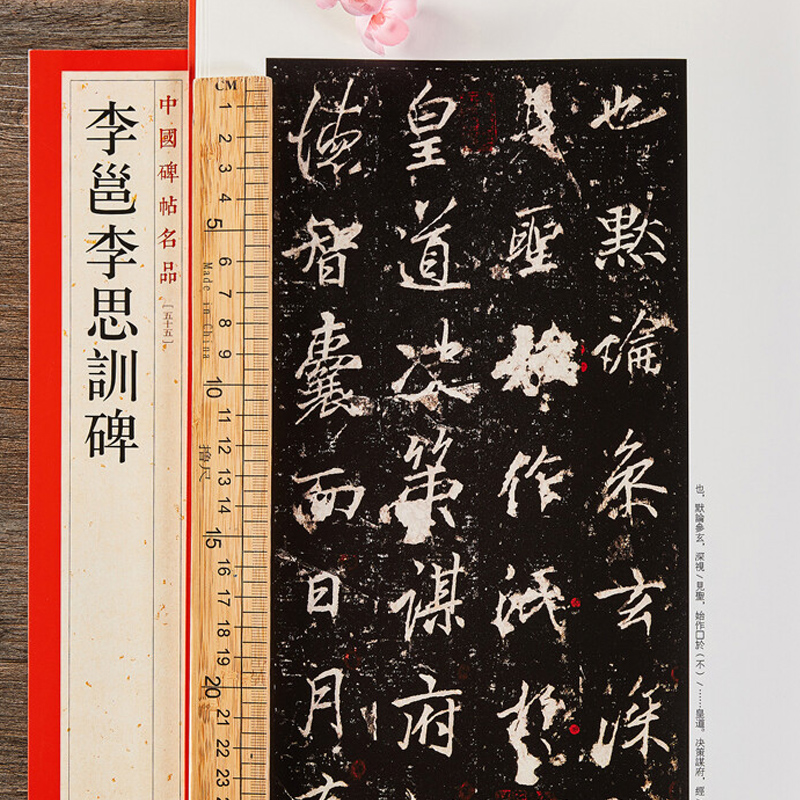 中國碑帖名品
［五十五］
李邕李思訓碑
CM
1
2
3
4
5
6
7
8
9
10
11
12
13
14
15
16
17
18
19
20
21
22
23
Made in China
也默論叅玄深
見聖始作於
皇道决策謀府
德智囊而日月
也，默論參玄，深視／見聖，始作□於（不）／……皇道。决策謀府，經